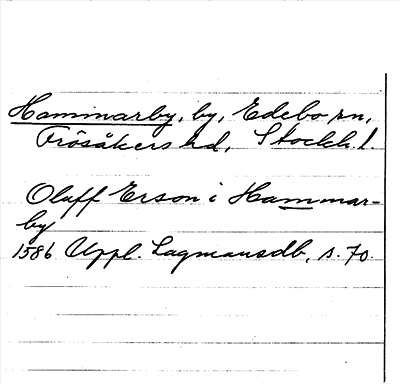 Hammarby, by, Edebo sn,
Frösåkers hd, Stockh. l.
Oluff Erson i Hammar-
by
1586 Uppl. Lagmansdb, s. 70.